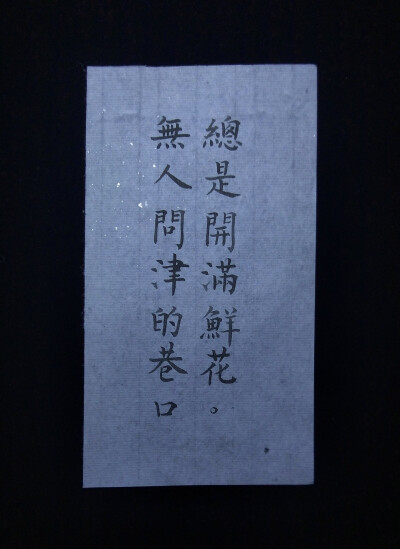 無人問津的巷口
總是開滿鮮花。